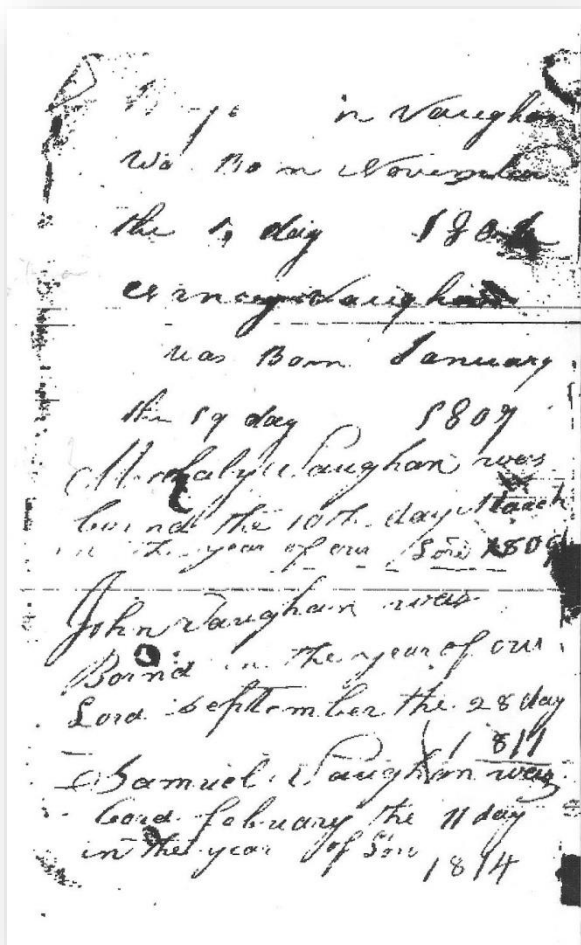 in Vaughan
Wa Born November
the day
Vaughan
was Born January
the 19 day 1807
Vaughan was
bornd the 10th day March
in the year of our Lord 1809
John Vaughan was
Bornd in the year of our
Lord September the 28 day
1811
Samuel Vaughan was
bord febuary the 11 day
in the year of Lord
1814